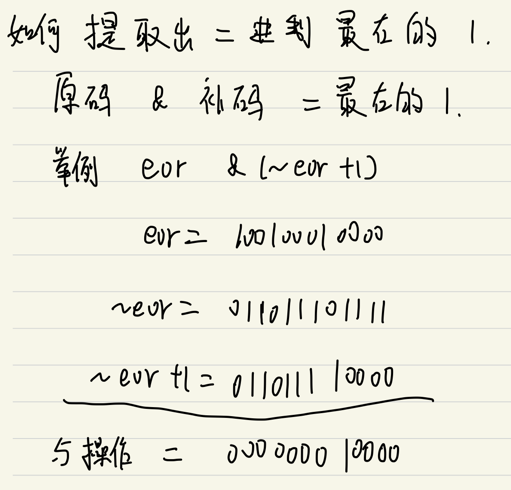 如何 提取出 二进制 最右的 1.
原码 & 补码 = 最右的 1.
举例 eor & (~eor +1)
eor = 100100010000
~eor = 011011101111
~eor +1 = 011011110000
与操作 = 000000010000